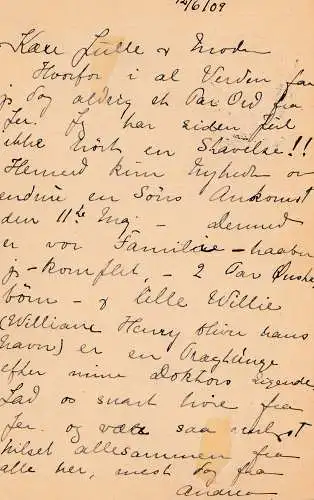 12/6/09
Kære Julle & Moder
Hvorfor i al Verden faar
jeg dog aldrig et Par Ord fra
Jer. Jeg har siden Jul
ikke hört en Stavelse!!
Hermed kun Nyheden om
endnu en Söns Ankomst
den 11te Maj – dermed
er vor Familie – haaber
jeg – komplet, – 2 Par Önske
börn – & lille Willie
(William Henry bliver hans
Navn) er en Pragtunge
efter mine Doktors Sigende.
Lad os snart höre fra
Jer. og vær saa inderligst
hilset allesammen fra
alle her, mest dog fra
Andrea